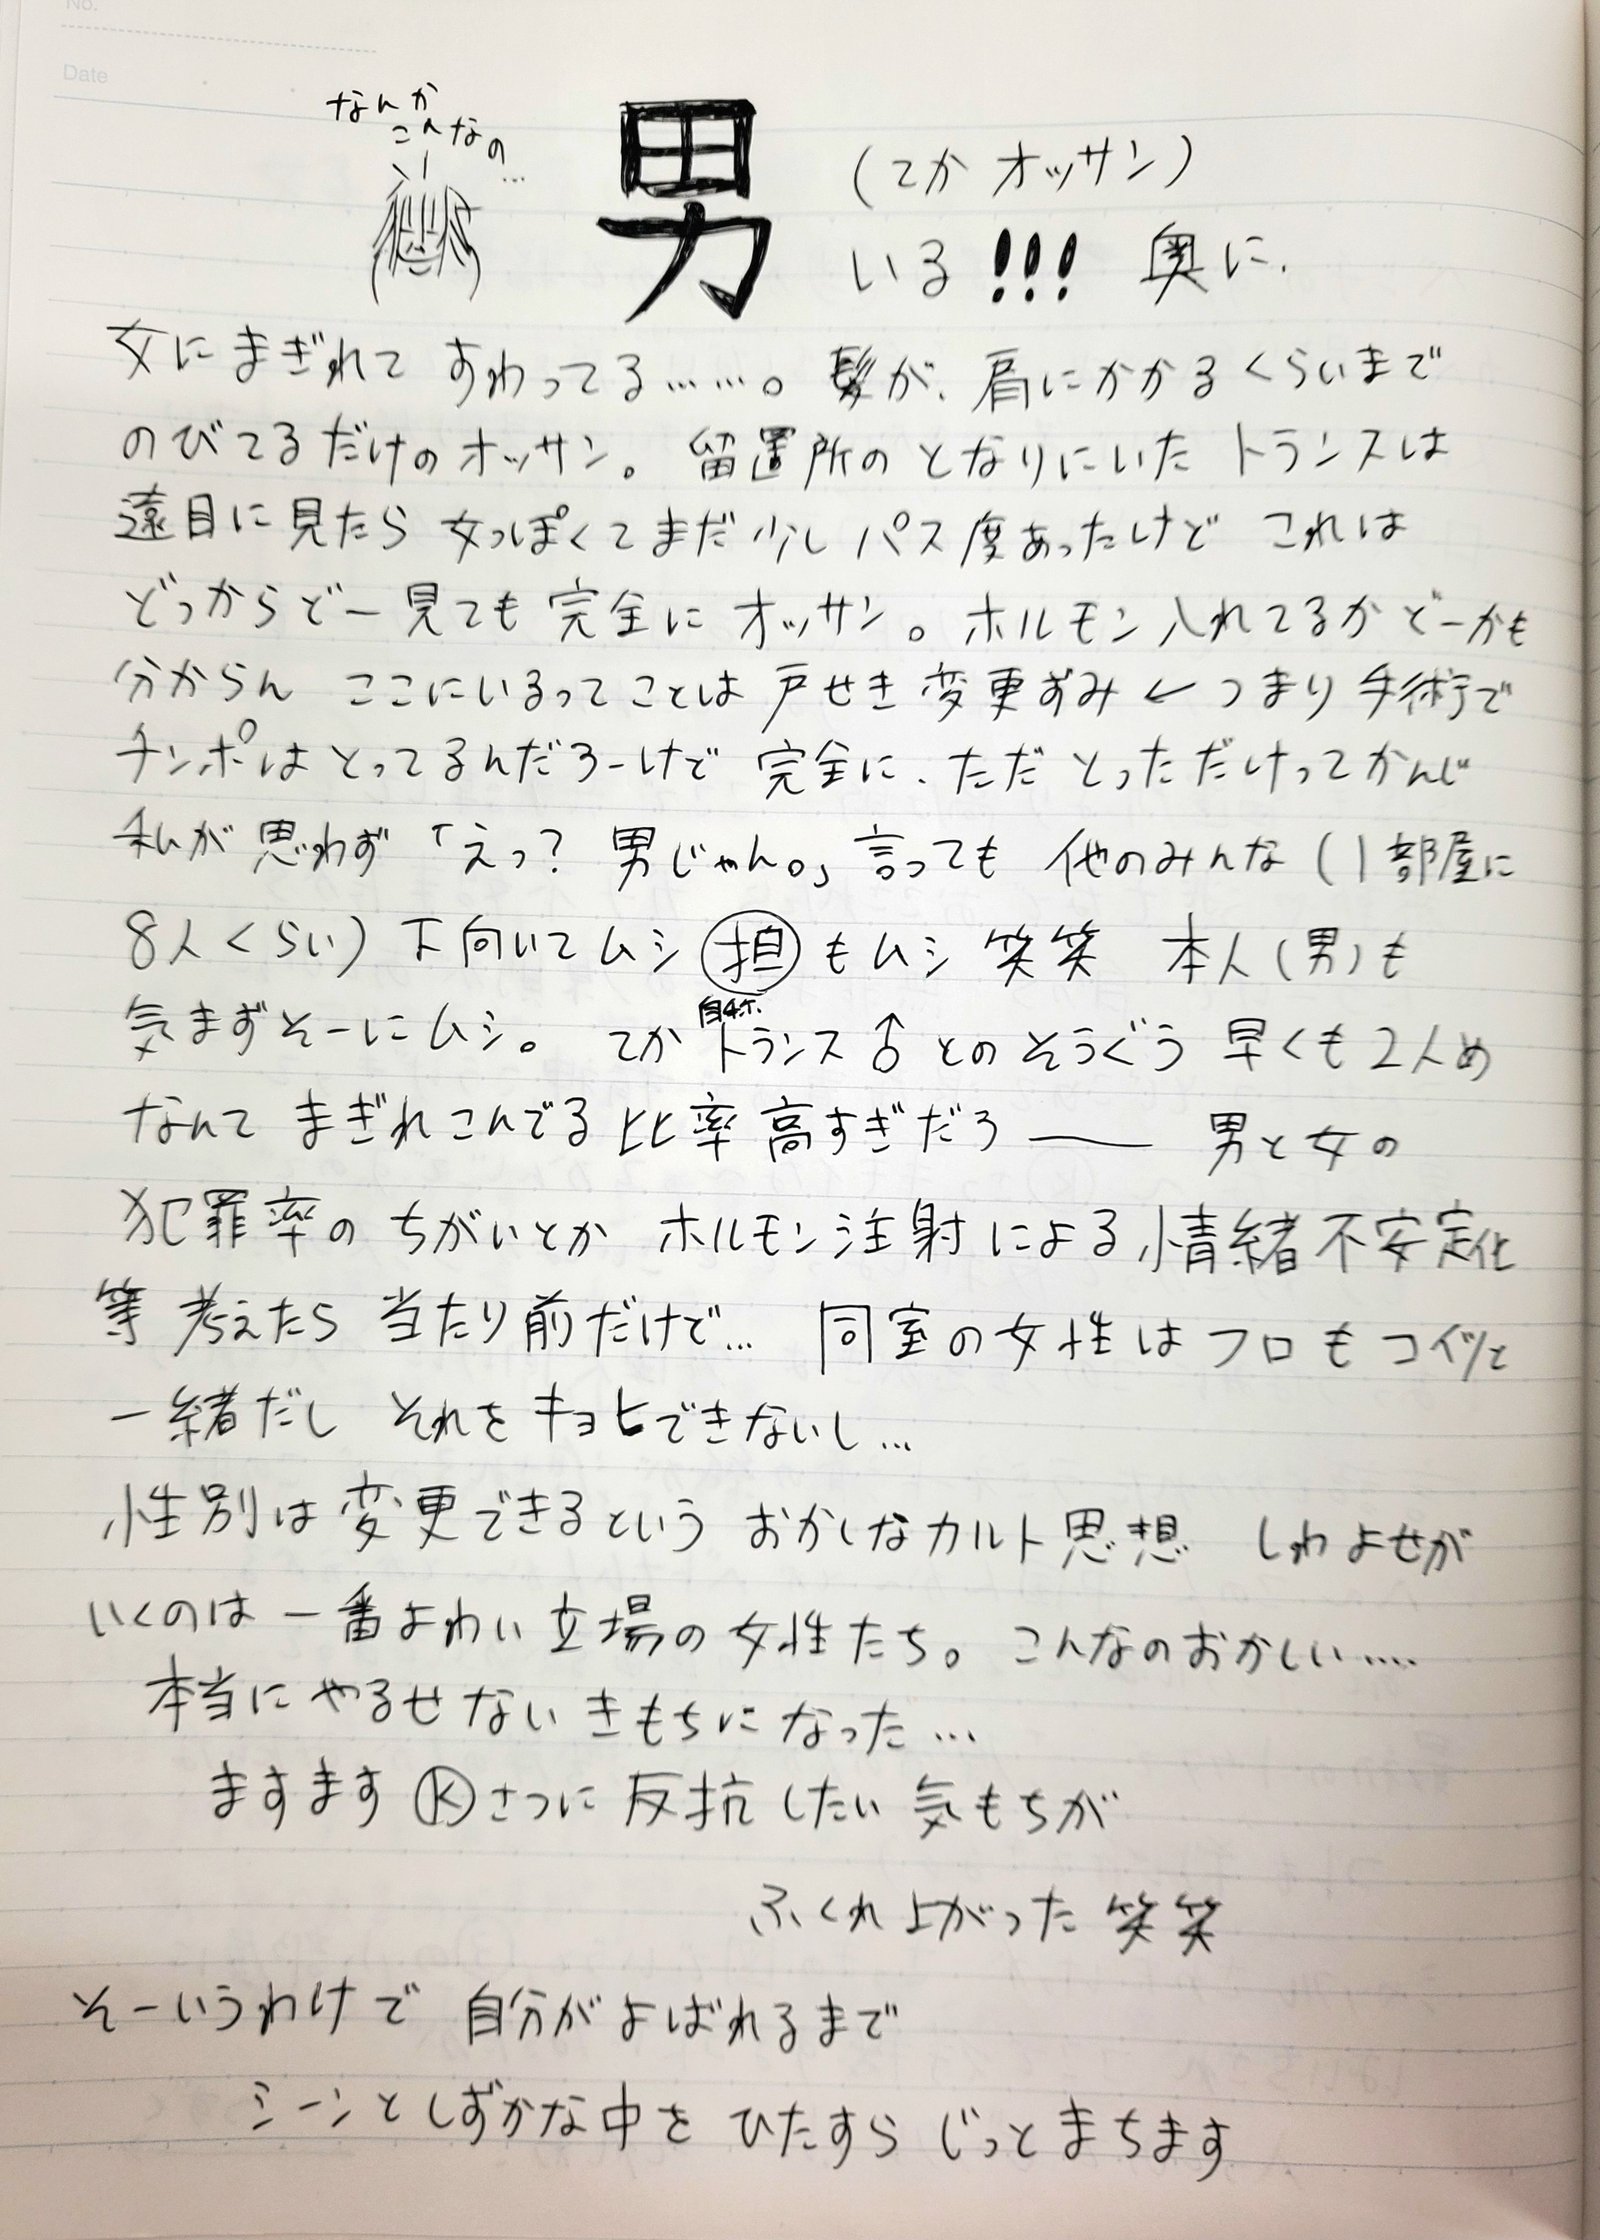 No.
Date
なんか
こんなの…
男
(てか オッサン)
いる!!! 奥に.
女にまぎれて すわってる……。髪が、肩にかかるくらいまで
のびてるだけのオッサン。留置所のとなりにいたトランスは
遠目に見たら女っぽくてまだ少しパス度あったけど これは
どっからどー見ても完全にオッサン。ホルモン入れてるかどーかも
分からん ここにいるってことは戸せき変更ずみ←つまり手術で
チンポはとってるんだろーけど 完全に、ただとっただけってかんじ
私が思わず「えっ? 男じゃん。」言っても 他のみんな(1部屋に
8人くらい)下向いてムシ 担もムシ 笑笑 本人(男)も
気まずそーにムシ。てか トランス♂とのそうぐう 早くも2人め
自称
なんて まぎれこんでる比率高すぎだろ── 男と女の
犯罪率のちがいとか ホルモン注射による情緒不安定化
等考えたら 当たり前だけど… 同室の女性はフロもコイツと
一緒だし それをキョヒできないし…
性別は変更できるという おかしなカルト思想 しわよせが
いくのは一番よわい立場の女性たち。こんなのおかしい….
本当にやるせないきもちになった…
ますますⓀさつに反抗したい気もちが
ふくれ上がった 笑笑
そーいうわけで 自分がよばれるまで
シーンとしずかな中を ひたすら じっとまちます